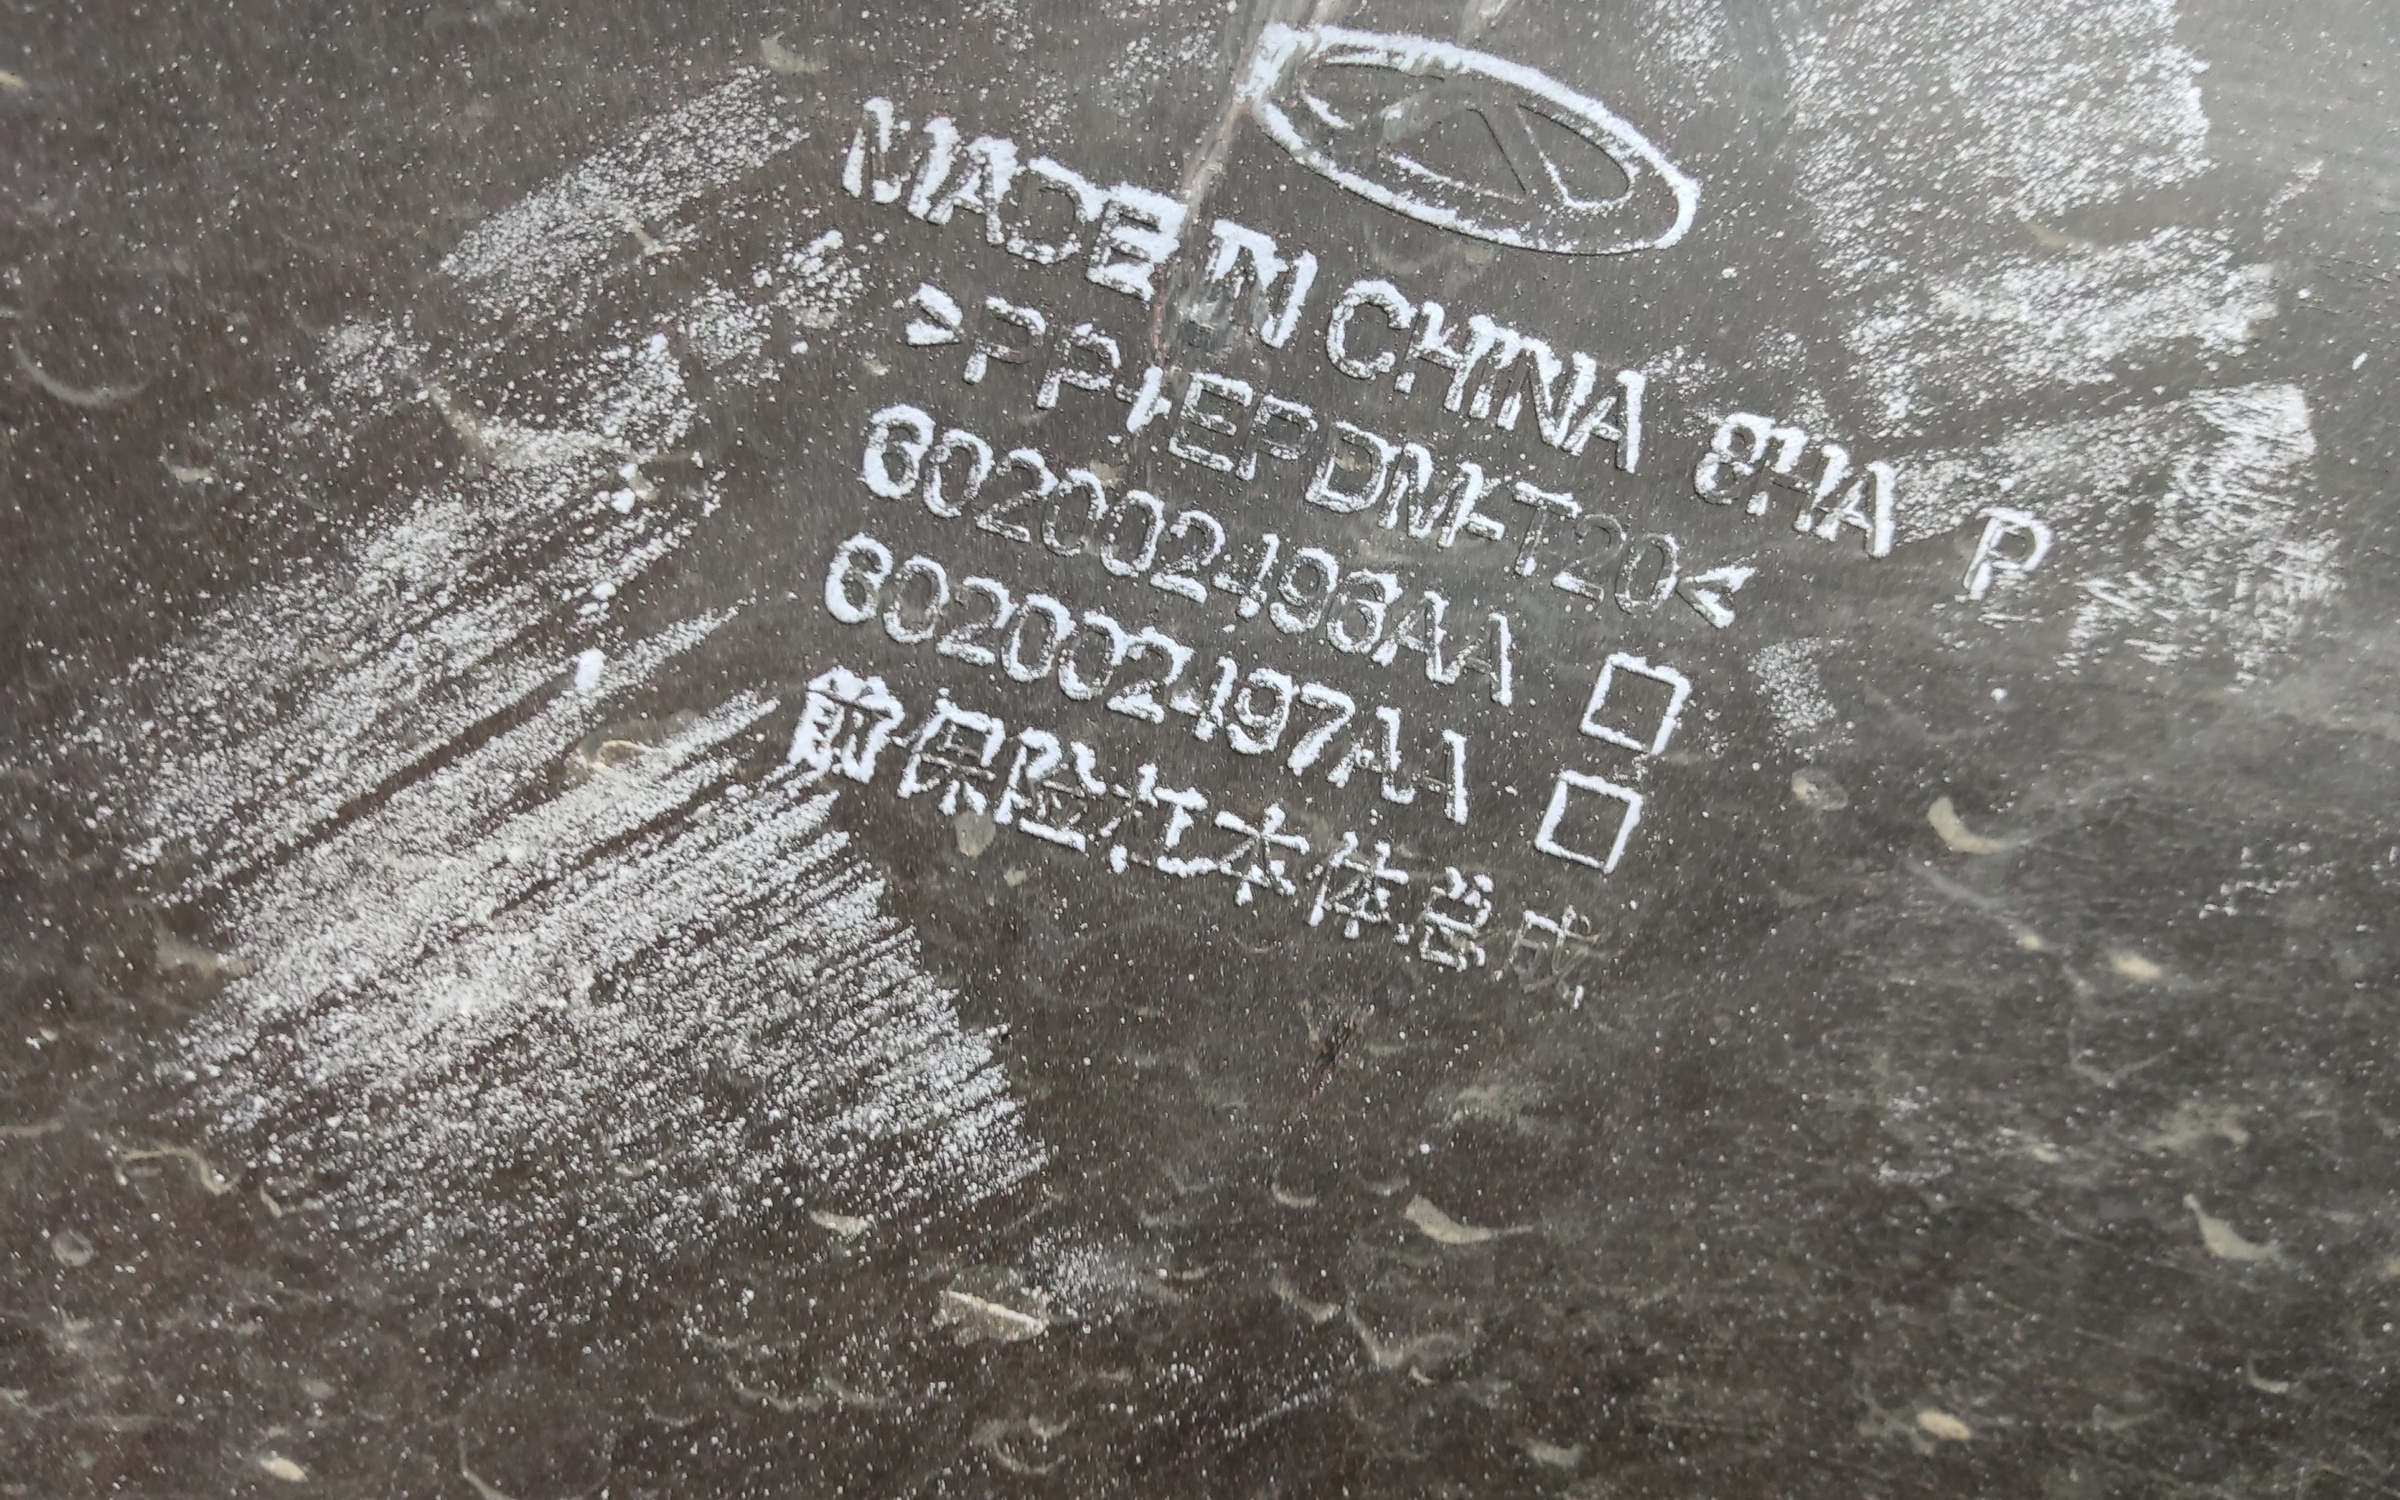 MADE IN CHINA 8HA P
>PP+EPDM-T20<
602002493AA □
602002497AA □
前保险杠本体总成